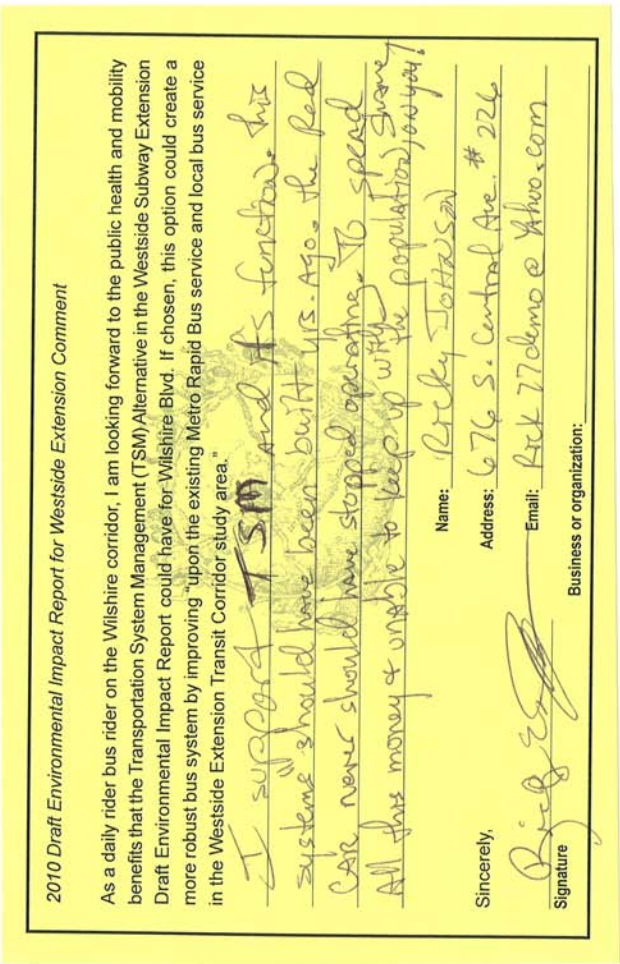 2010 Draft Environmental Impact Report for Westside Extension Comment
As a daily rider bus rider on the Wilshire corridor, I am looking forward to the public health and mobility
benefits that the Transportation System Management (TSM) Alternative in the Westside Subway Extension
Draft Environmental Impact Report could have for Wilshire Blvd. If chosen, this option could create a
more robust bus system by improving "upon the existing Metro Rapid Bus service and local bus service
in the Westside Extension Transit Corridor study area."
I support TSM and its function. This
systems should have been built yrs. Ago. the Red
CAR never should have stopped operating. To spend
All this money & unable to keep up with the population, shame on you!
Name: Ricky Johnson
Address: 676 S. Central Ave. # 226
Sincerely,
Email: Rick77demo@Yahoo.com
Signature
Business or organization: